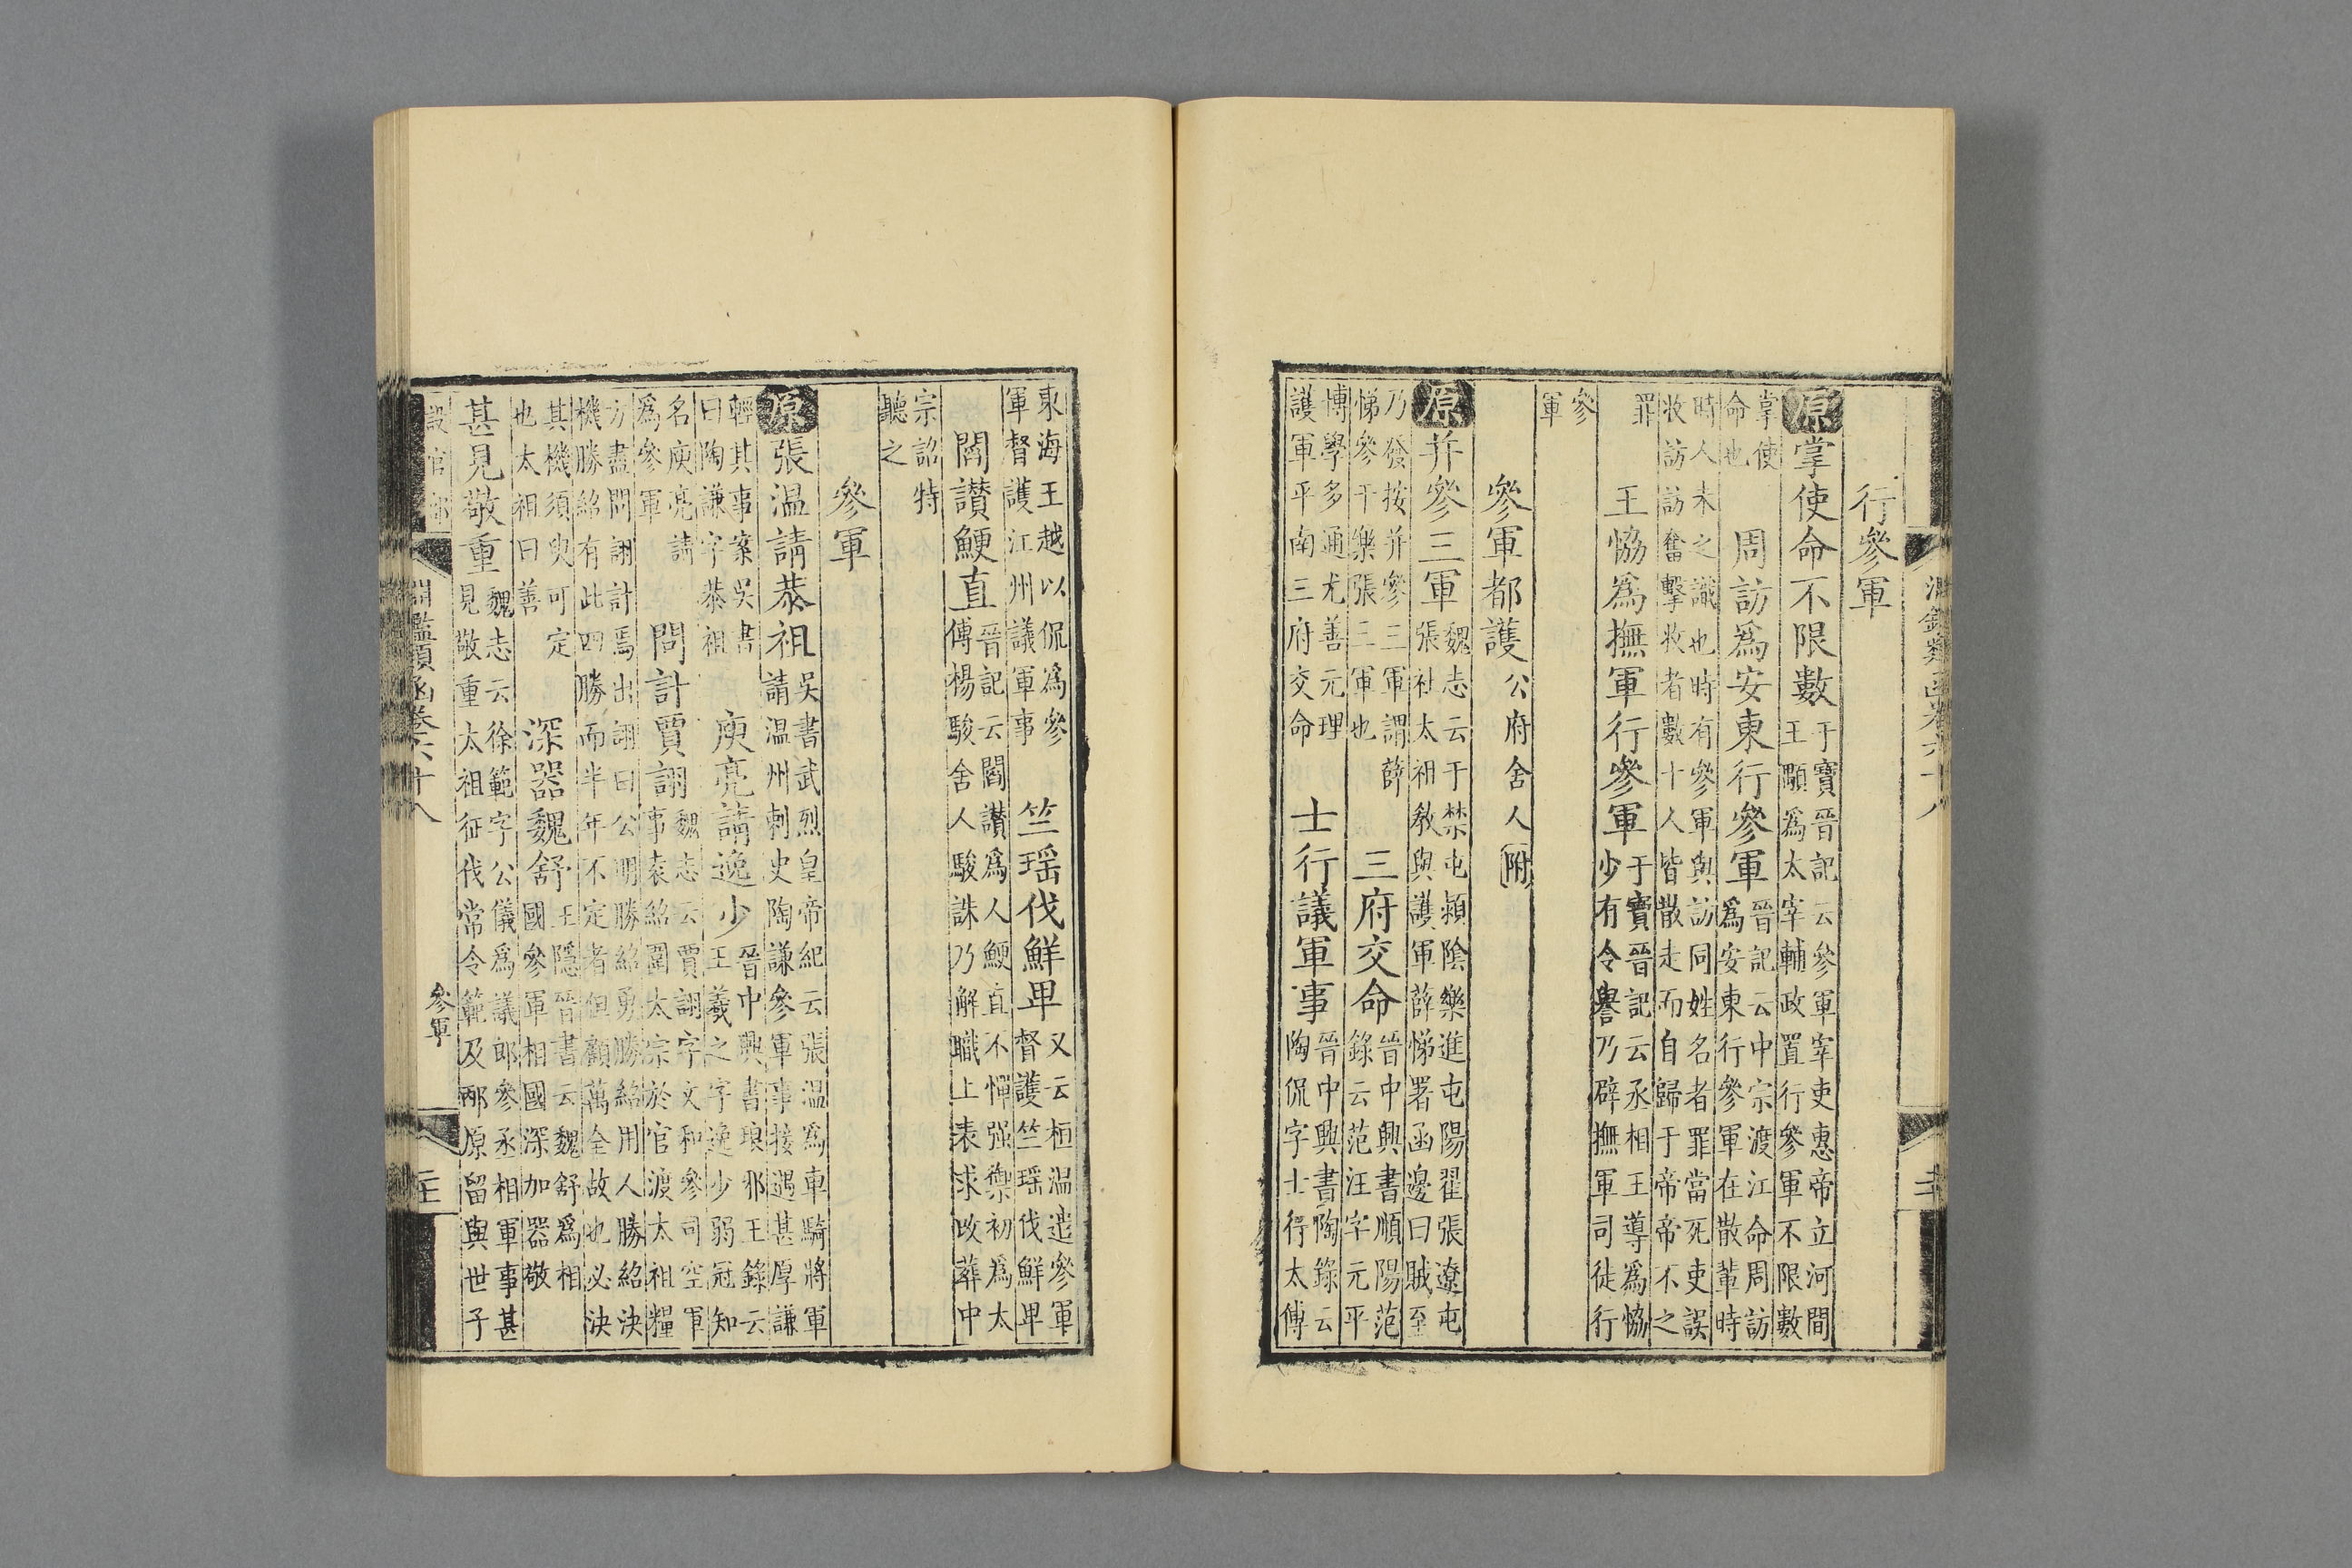 行參軍
原掌使命不限數
于寶晉記云參軍宰吏惠帝立河間
王顒爲太宰輔政置行參軍不限數
掌使
命也
周訪爲安東行參軍
晉記云中宗渡江命周訪
爲安東行參軍在散輩時
時人未之識也時有參軍與訪同姓名者罪當死吏誤
收訪訪奮擊收者數十人皆散走而自歸于帝帝不之
罪
王恊爲撫軍行參軍
于寶晉記云丞相王導爲恊
少有令譽乃辟撫軍司徒行
參
軍
參軍都護 公府舍人附
原并參三軍
魏志云于禁屯潁陰樂進屯陽翟張遼屯
張社太祖教與護軍薛悌署函邊曰賊至
乃發按并參三軍謂薛
悌參于樂張三軍也
三府交命
晉中興書順陽范
錄云范汪字元平
博學多通尤善元理
護軍平南三府交命
士行議軍事
晉中興書陶錄云
陶侃字士行太傅
東海王越以侃爲參
軍督護江州議軍事
竺瑶伐鮮卑
又云桓温遣參軍
督護竺瑶伐鮮卑
閻讃鯁直
晉記云閻讃爲人鯁直不憚强禦初爲太
傅楊駿舍人駿誅乃解職上表求改葬中
宗詔特
聽之
參軍
原張温請恭祖
吳書武烈皇帝紀云張温爲車騎將軍
請温州刺史陶謙參軍事接遇甚厚謙
輕其事案吳書
曰陶謙字恭祖
庾亮請逸少
晉中興書琅邪王錄云
王羲之字逸少弱冠知
名庾亮請
爲參軍
問計賈詡
魏志云賈詡字文和參司空軍
事袁紹圍太宗於官渡太祖糧
方盡問詡計焉出詡曰公明勝紹勇勝紹用人勝紹決
機勝紹有此四勝而半年不定者但顧萬全故也必決
其機須臾可定
也太祖曰善
深器魏舒
王隱晉書云魏舒爲相
國參軍相國深加器敬
甚見敬重
魏志云徐範字公儀爲議郎參丞相軍事甚
見敬重太祖征伐常令範及邴原留與世子
淵鑑類函卷六十八
參軍